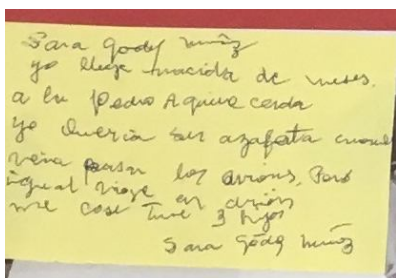 Sara Godoy Muñoz
yo llege nacida de meses.
a la Pedro Aguirre cerda
yo queria ser azafata cuando
veia pasar los avions. Pero
igual viaje en avión
me case tuve 3 hijos
Sara Godoy Muñoz